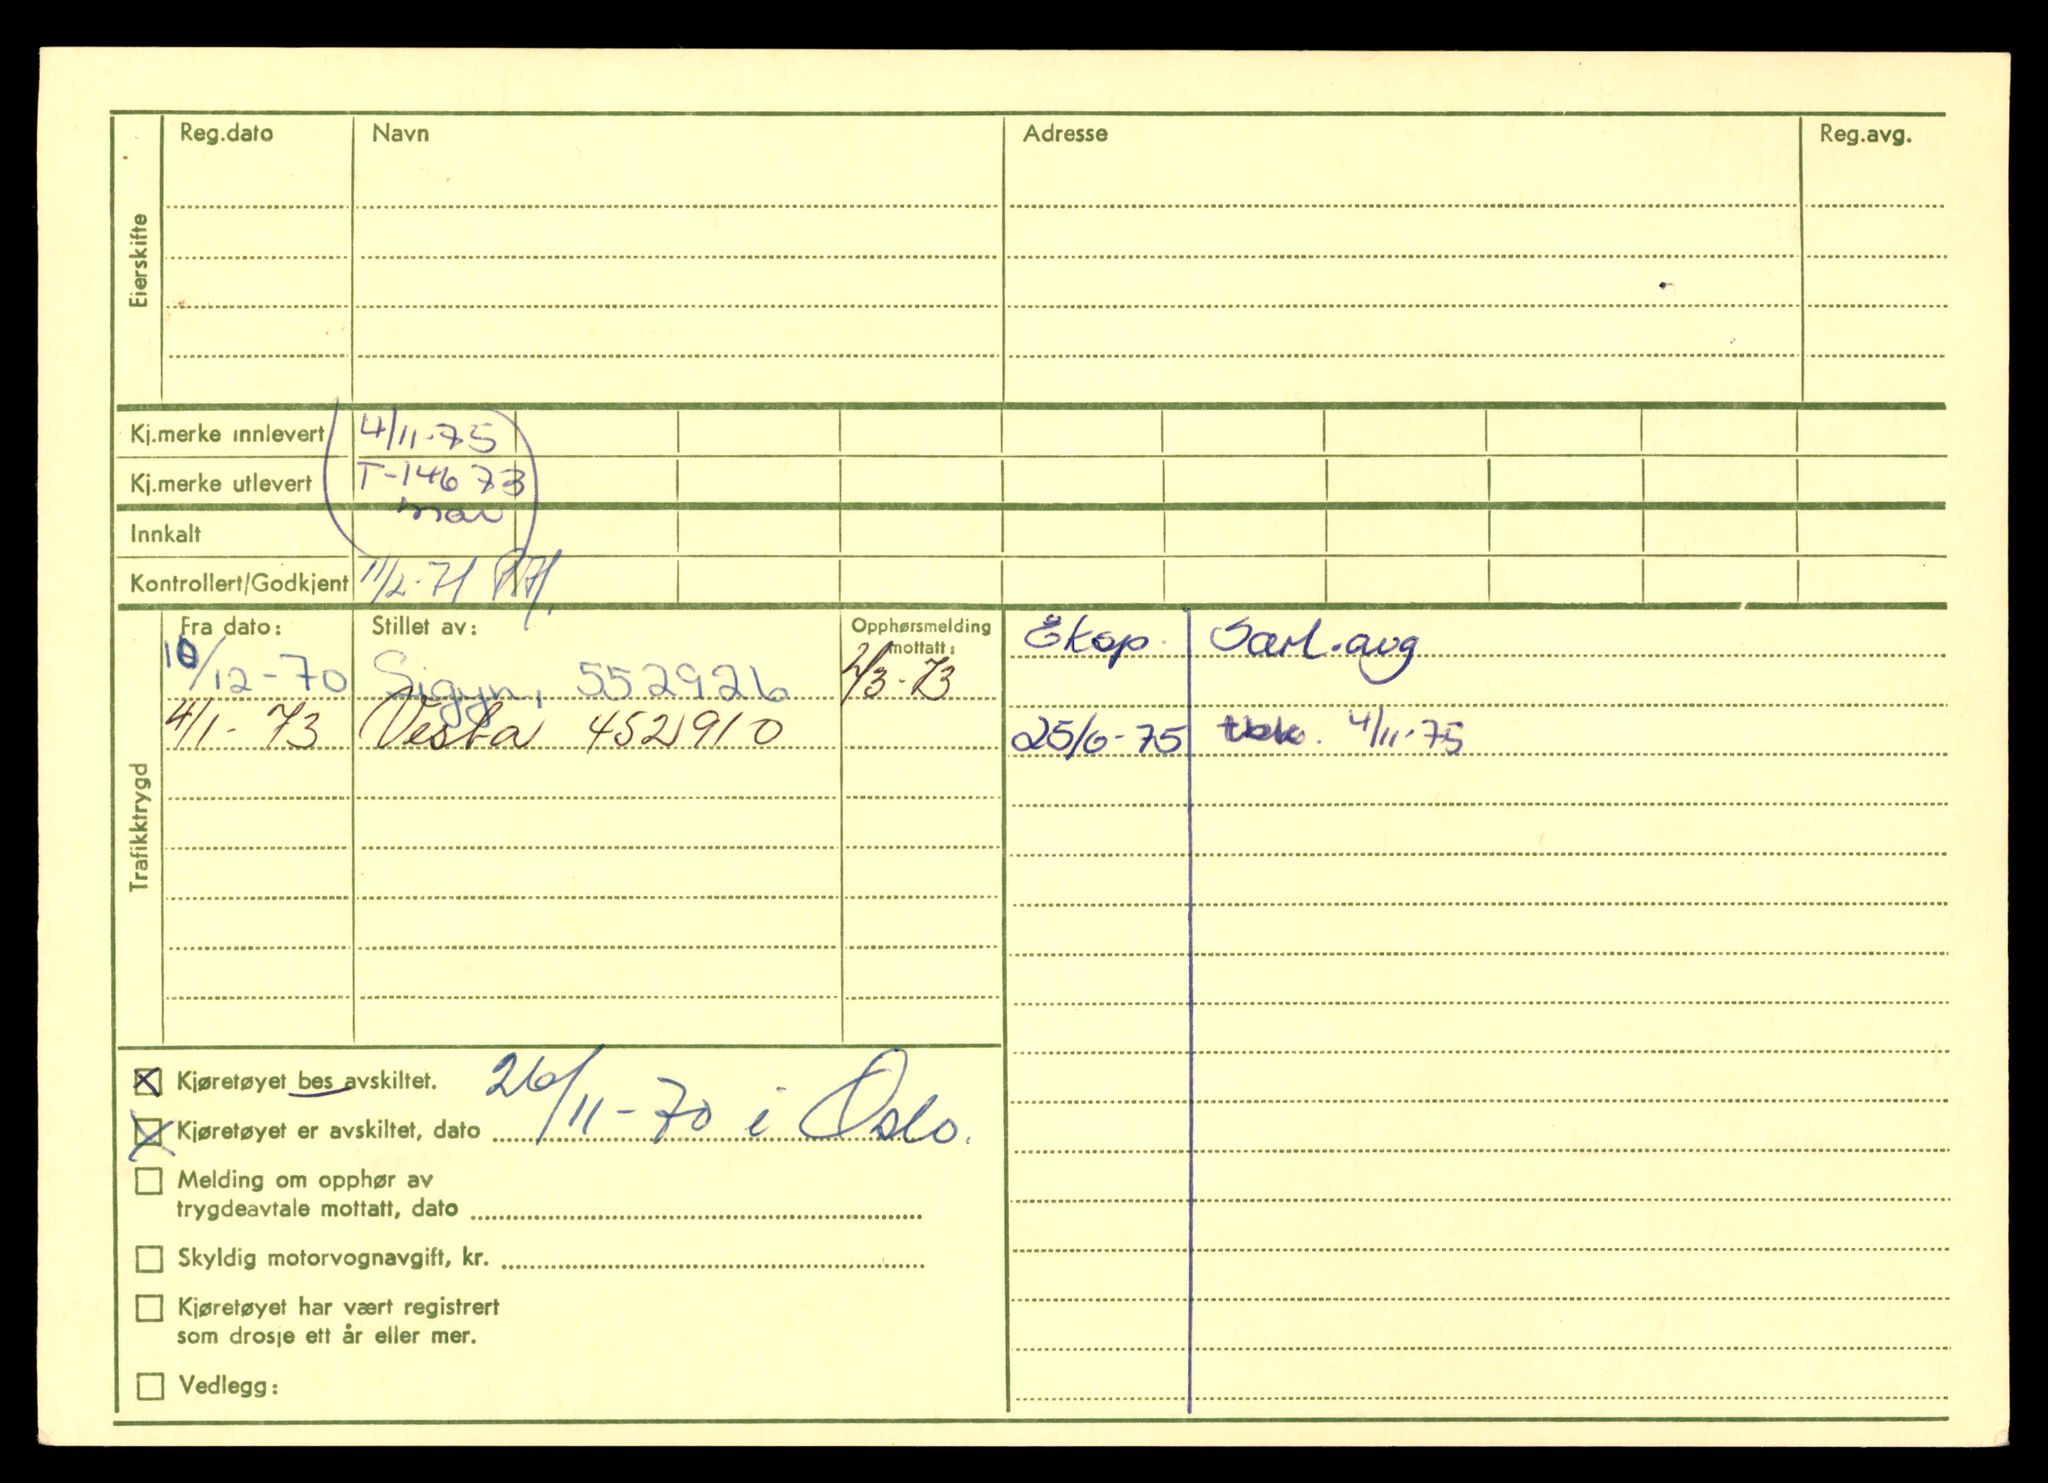 Eierskifte
Reg.dato Navn Adresse Reg.avg.
Kj.merke innlevert 4/11-75
Kj.merke utlevert T-14673
Innkalt
Kontrollert/Godkjent 11/2-71
Trafikktrygd
Fra dato: Stillet av: Opphørsmelding mottatt: Eksp. Særl.avg
10/12-70 Sigyn, 552926 2/3-73
4/1-73 Vesta 452910 25/6-75 4/11-75
Kjøretøyet bes avskiltet.
Kjøretøyet er avskiltet, dato 26/11-70 i Oslo.
Melding om opphør av
trygdeavtale mottatt, dato
Skyldig motorvognavgift, kr.
Kjøretøyet har vært registrert
som drosje ett år eller mer.
Vedlegg: